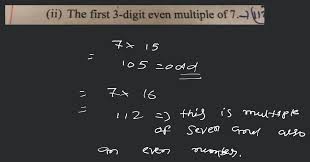 (ii) The first 3-digit even multiple of 7. → (112
7 x 15
=
105 = odd
= 7 x 16
= 112 => this is multiple
of seven and also
an even number.